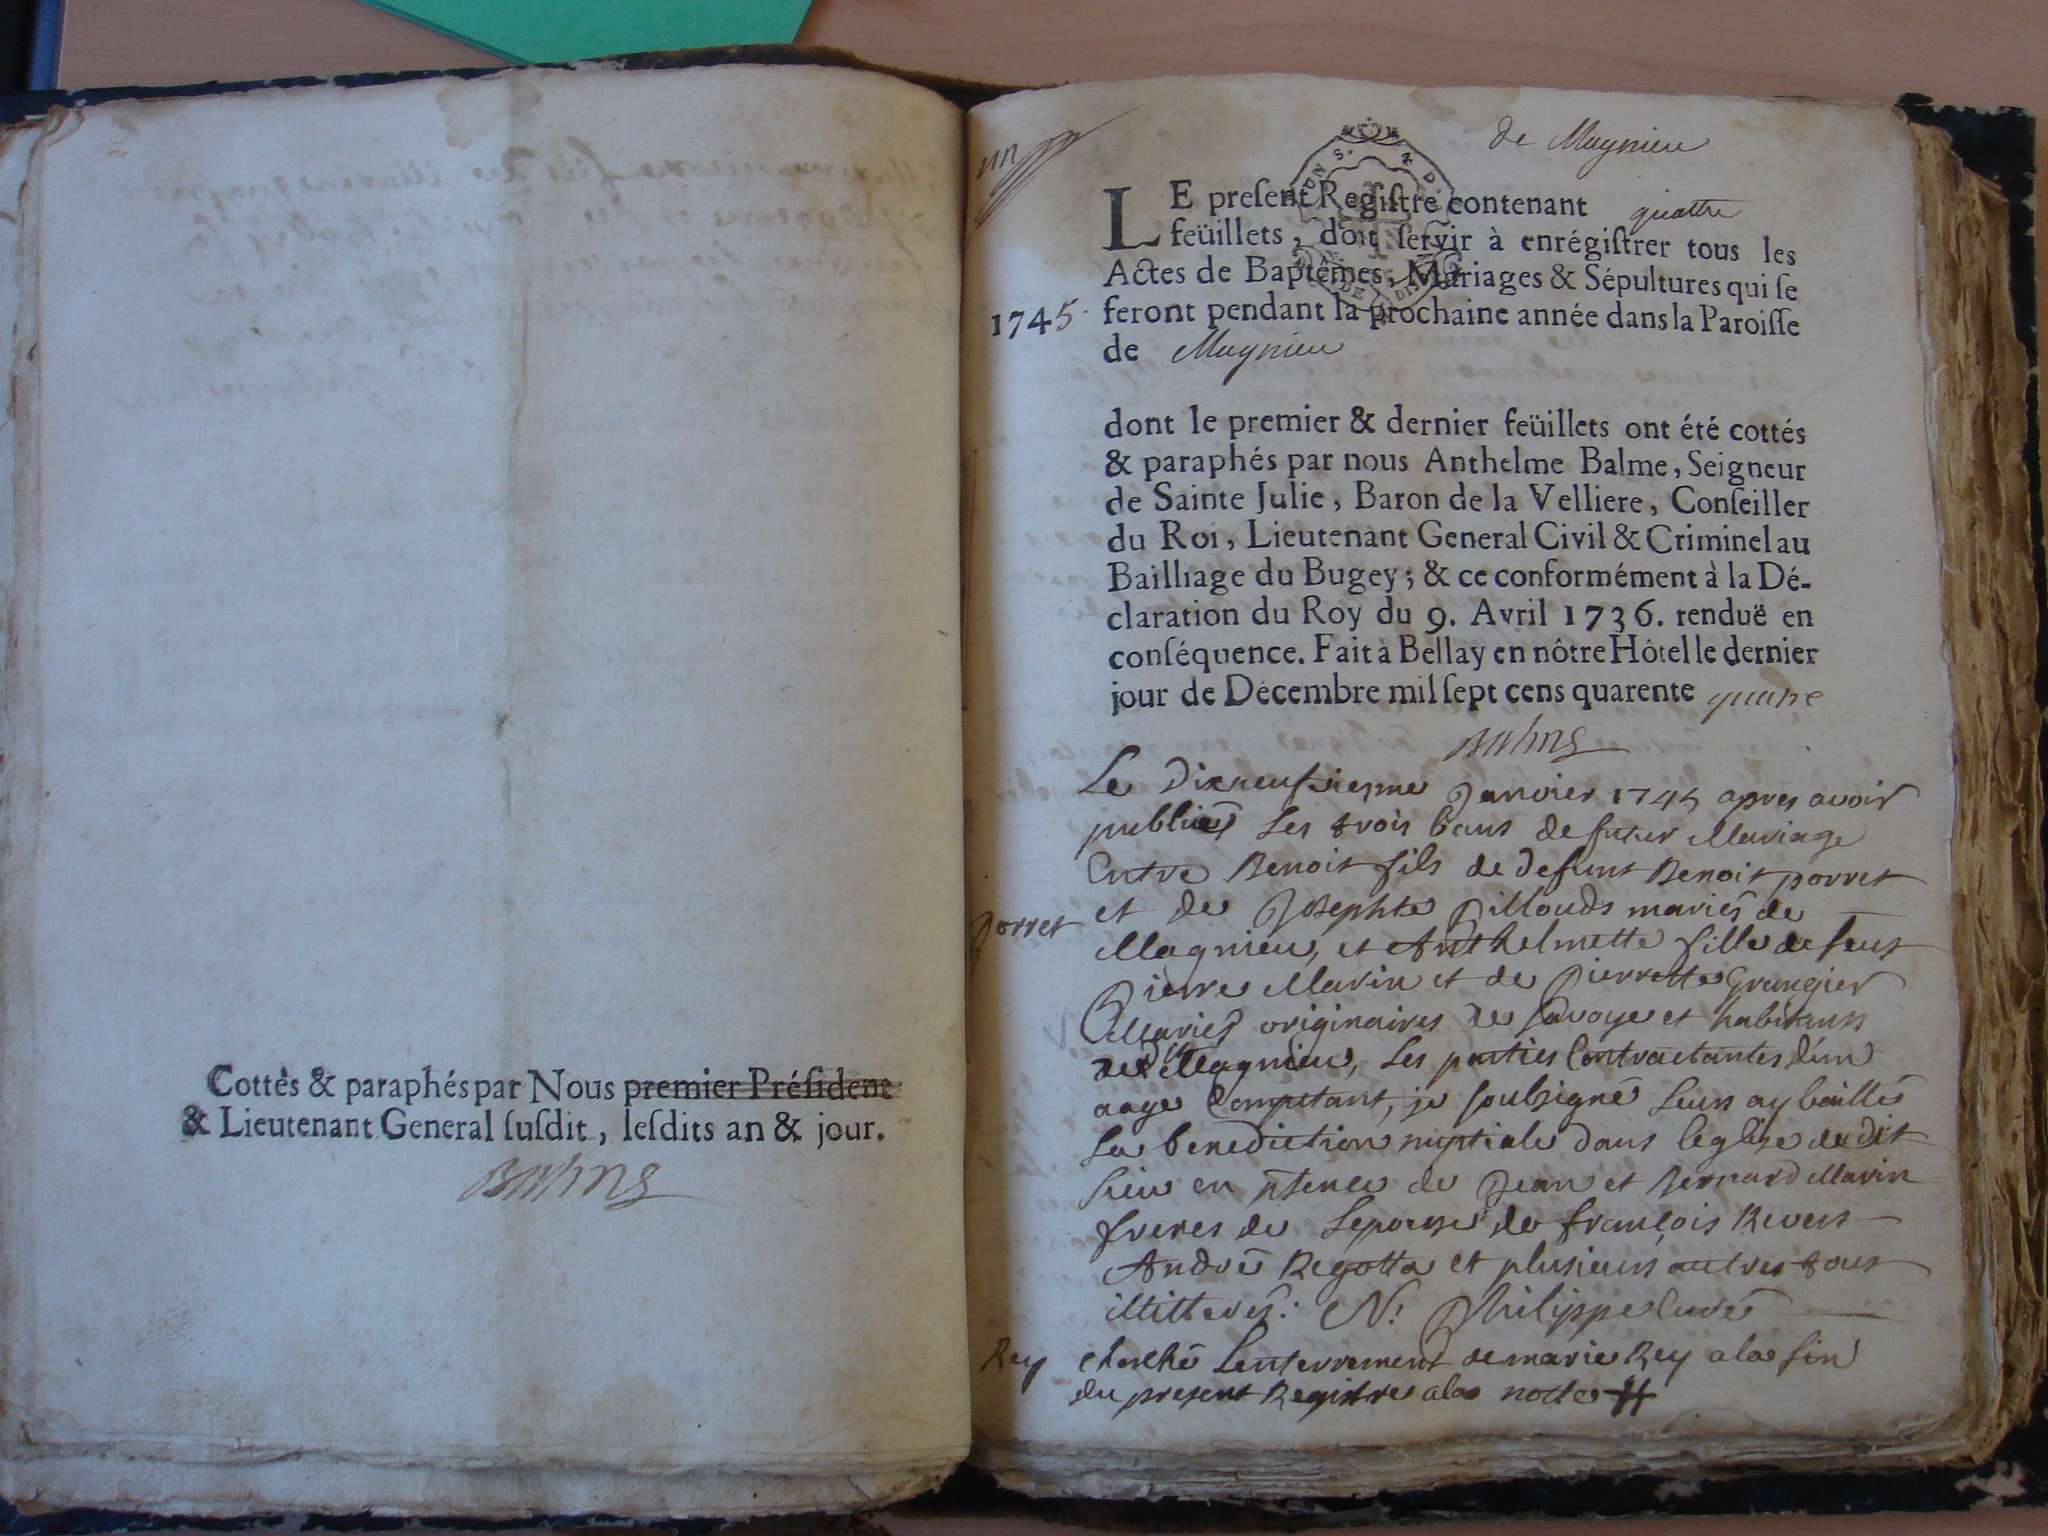 Cottés & paraphés par Nous premier Président
& Lieutenant General ſuſdit, leſdits an & jour.
un
de Magnieu
LE preſent Regiſtre contenant quattre
feüillets, doit ſervir à enrégiſtrer tous les
Actes de Baptêmes, Mariages & Sépultures qui ſe
1745 feront pendant la prochaine année dans la Paroiſſe
de Magnieu
dont le premier & dernier feüillets ont été cottés
& paraphés par nous Anthelme Balme, Seigneur
de Sainte Julie, Baron de la Velliere, Conſeiller
du Roi, Lieutenant General Civil & Criminel au
Bailliage du Bugey; & ce conformément à la Dé-
claration du Roy du 9. Avril 1736. renduë en
conſéquence. Fait à Bellay en nôtre Hôtel le dernier
jour de Décembre mil ſept cens quarente quatre
Le Dixneufviesme Janvier 1745 apres avoir
publiés Les trois bans de futur Mariage
Entre Benoit fils de defunt Benoit porret
Porret et de Josephte Pillouds mariés de
Magnieu, et Anthelmette fille de feut
Pierre Marin et de Pierrette Grangier
Mariés originaires de Savoye et habitants
de Magnieu, Les parties Contractantes d'un
aage Competant, je soubsigné Leurs ay baillés
La benediction nuptiale dans leglise dudit
Lieu en psence de Jean et Bernard Marin
freres de Lepouse de françois Revert
André Regotta et plusieurs autres tous
illitterés: N: Philippe Curé
Rey cherché Lenterrement de marie Rey a la fin
du present Registre a la notte